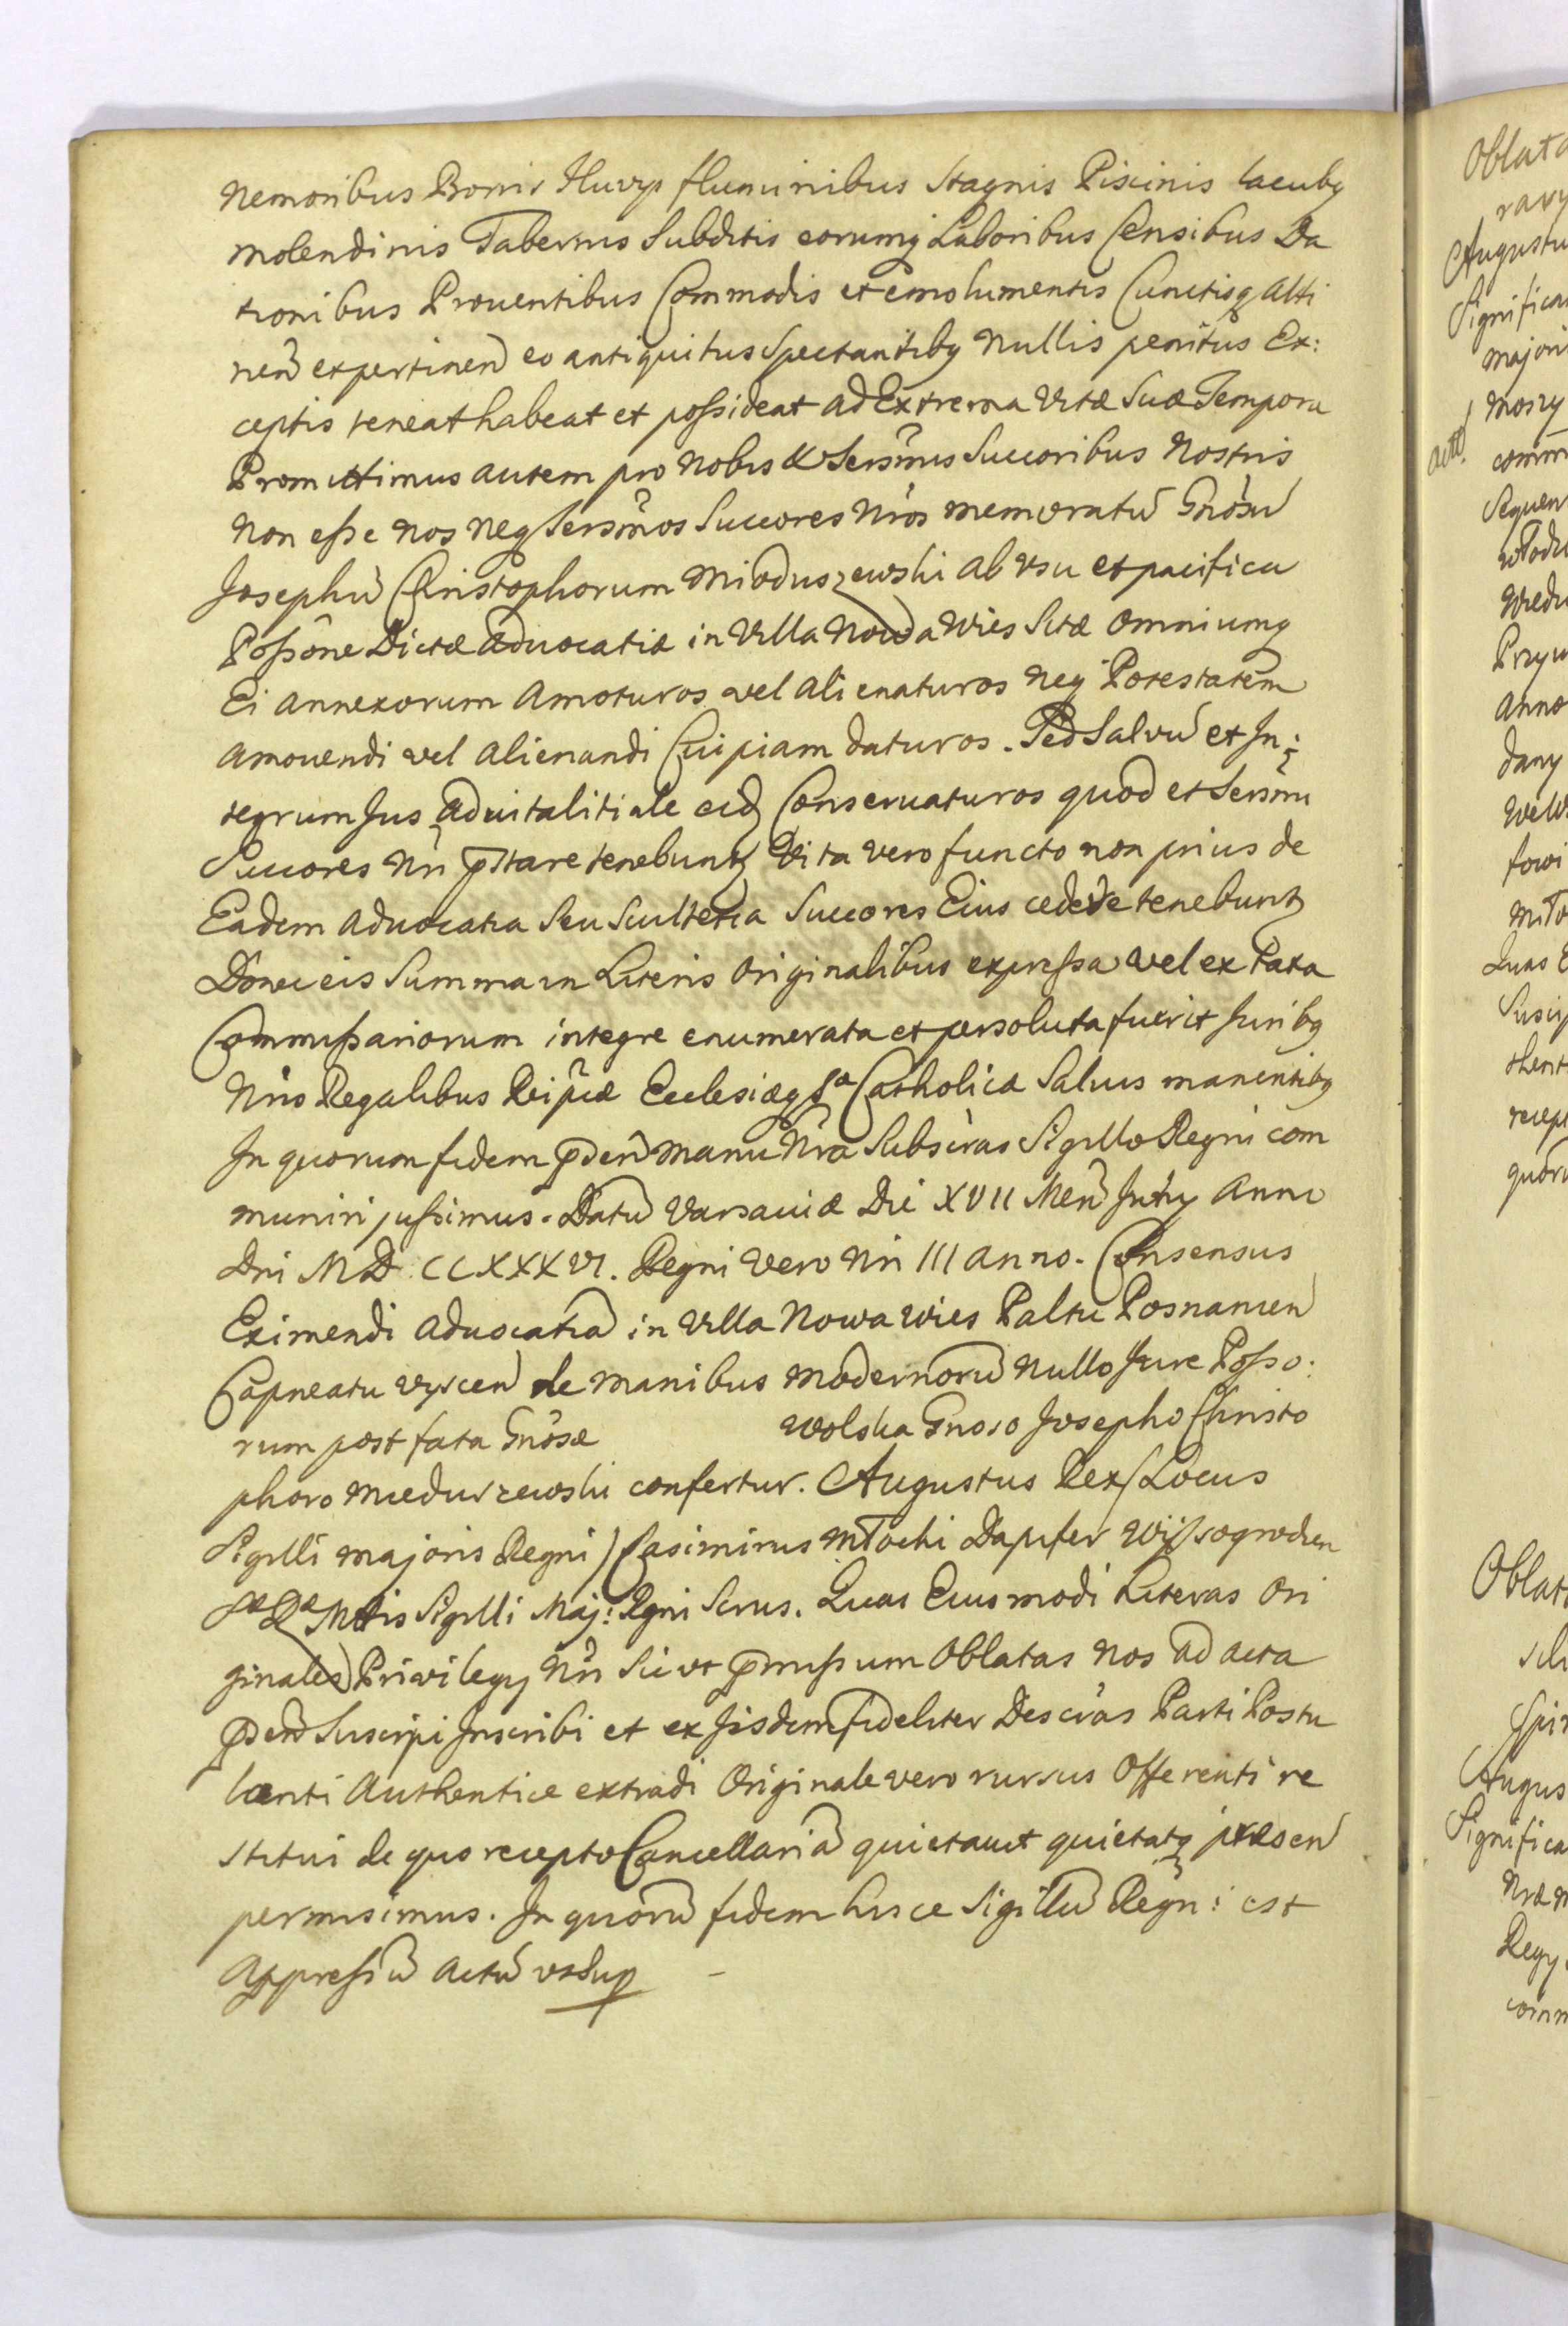 nemoribus Borris fluvys fluminibus Stagnis Piscinis lacubq
molendinis Tabernis Subditis eorumq Laboribus Censibus Da
tionibus Prouentibus Commodis et emolumentis Cunctisq atti
nen̄ et pertinen̄ eo antiquitus Spectantibq Nullis penitus Ex:
ceptis teneat habeat et poſsideat ad Extrema Vitæ Suæ Tempora
Promittimus autem pro Nobis & Sersm̄is Succoribus Nostris
Non eſse nos neq Sersm̄os Succores Nr̄os memoratū Gnōsū
Josephū Christophorum Mioduszewski ab vsu et pacifica
Poſsōne Dictæ advocatiæ in Villa Nowa Wies Sitæ Omniumq
Ei annexorum amoturos vel alienaturos neq Potestatem
amouendi vel alienandi Cuipiam daturos. Sed Salvū et In:
tegrum Jus aduitalitiale eid Conseruaturos quod et Sersm̄i
Succores Nr̄i p̄stare tenebuntr Vita vero functo non prius de
Eadem advocatia Seu Scultetia Succores Eius cedere tenebuntr
Donec eis Summa in Literis Originalibus expreſsa vel ex Taxa
Commiſsariorum integre enumerata et persoluta fuerit Juribq
Nr̄is Regalibus Reip̄cæ Ecclesiæq Sæ Catholicæ Saluis manentibq
In quorum fidem p̄den̄ manu Nr̄a Subscr̄as Sigillo Regni com
muniri juſsimus. Datū Varsaviæ Die XVII Men̄ July Anno
Dni MD. CCXXXVI. Regni vero Nr̄i III anno. Consensus
Eximendi advocatiā in Villa Nowa Wies Paltu Posnanien̄
Capneatu vyscen̄ de manibus modernorū nullo Jure Poſso:
rum post fata Gnōsæ Wolska Gnoso Josepho Christo
phoro Miedurzewski confertur. Augustus Rex (Locus
Sigilli majoris Regni) Casimirus Młocki Dapifer Wiſsogrodien
Sæ Ræ Mttis Sigilli Maj: Rgni Scrus. Quas Eiusmodi Literas Ori
ginales Privilegy Nr̄i Sicut p̄miſsum Oblatas Nos ad acta
p̄den̄ Suscipi Inscribi et ex Jisdem fideliter Descr̄as Parti Postu
lanti authentice extradi Originale vero rursus Offerenti re
stitui de quo recepto Cancellariā quietauit quietatq præsen̄
permisimus. In quorū fidem hisce Sigillū Regn: est
appreſsū Actū vt Sup
Oblata
Augustu
Significa
majori
actō.
Anno
dany
quoru
Oblat
Augus
Significa